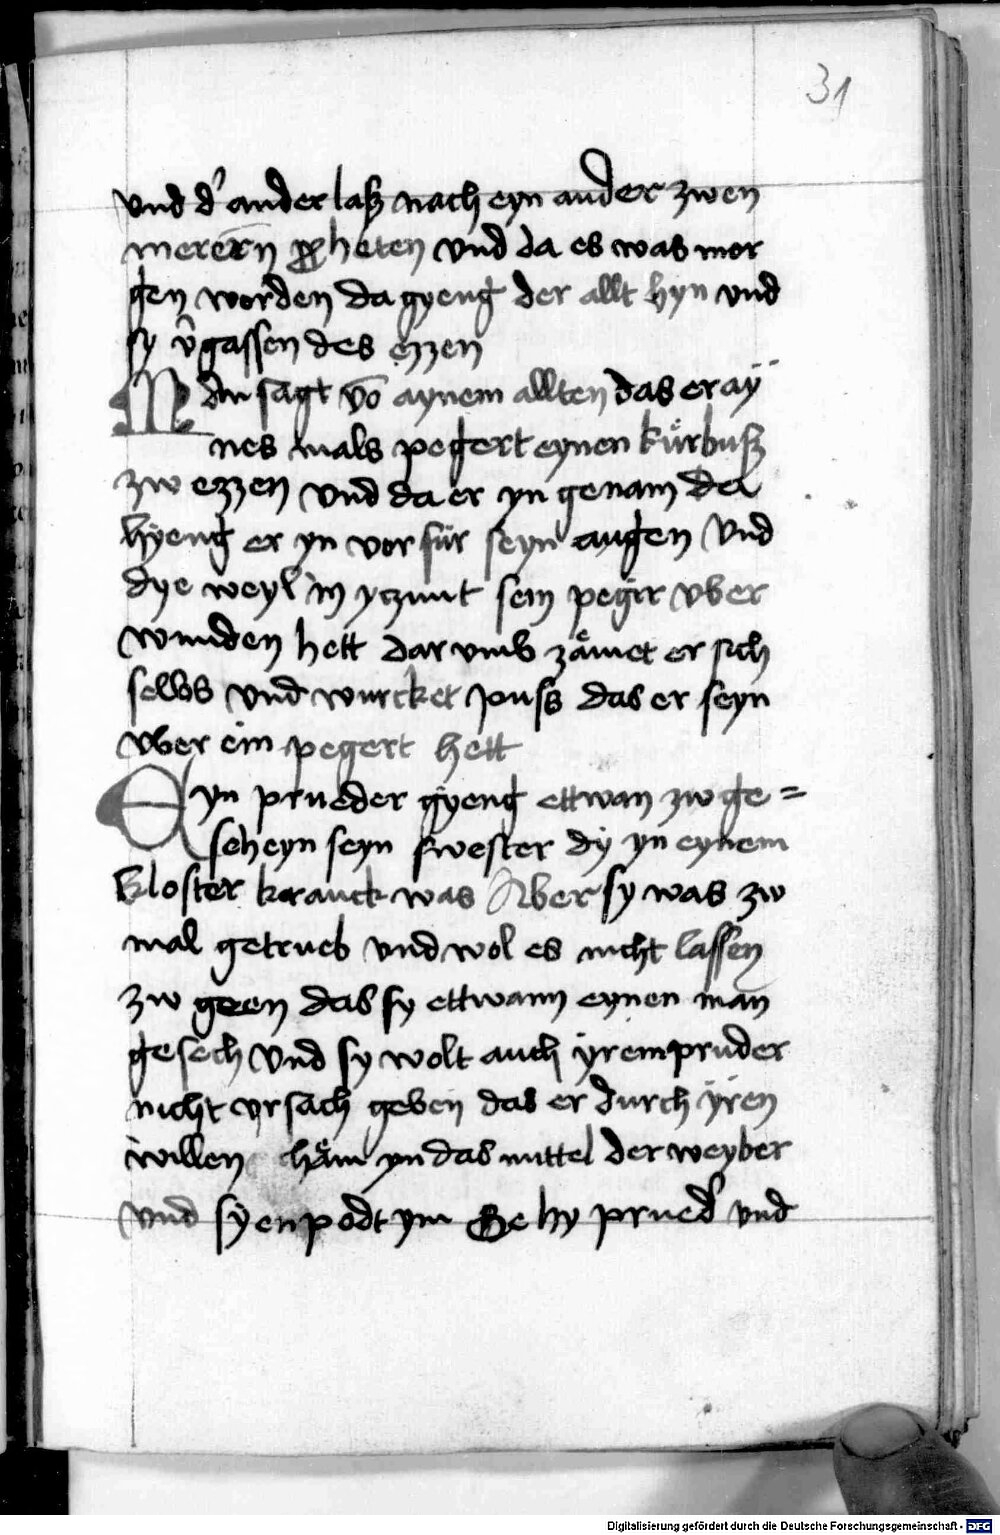 31
vnd d' ander lasz nach eyn ander zwen
merern ꝓheten vnd da es was mor
gen worden da gyeng der allt hyn vnd
sy v̄gassen des ezzen
Man sagt vō aynem allten das er aÿ
nes mals pegert eynen kůrbusz
zw ezzen vnd da er yn genam da
hÿeng er yn vor fůr seyn augen vnd
dye weyl in yczunt sein pegir vber
wunden hett dar vmb zåmet er sich
selbs vnd wurcket puss das er seyn
vber ein pegert hett
Eyn prueder gyeng ettwan zw ge=
seheyn seyn swester dÿ yn eynem
kloster kranck was Aber sy was zw
mal getrueb vnd wol es nicht lassen
zw geen das sy ettwann eynen man
gesech vnd sy wolt auch ÿrem pruder
nicht vrsach geben das er durch ÿren
willen chåm yn das mittel der weyber
vnd sy enpodt ym Ge hy prued' vnd
Digitalisierung gefördert durch die Deutsche Forschungsgemeinschaft - DFG